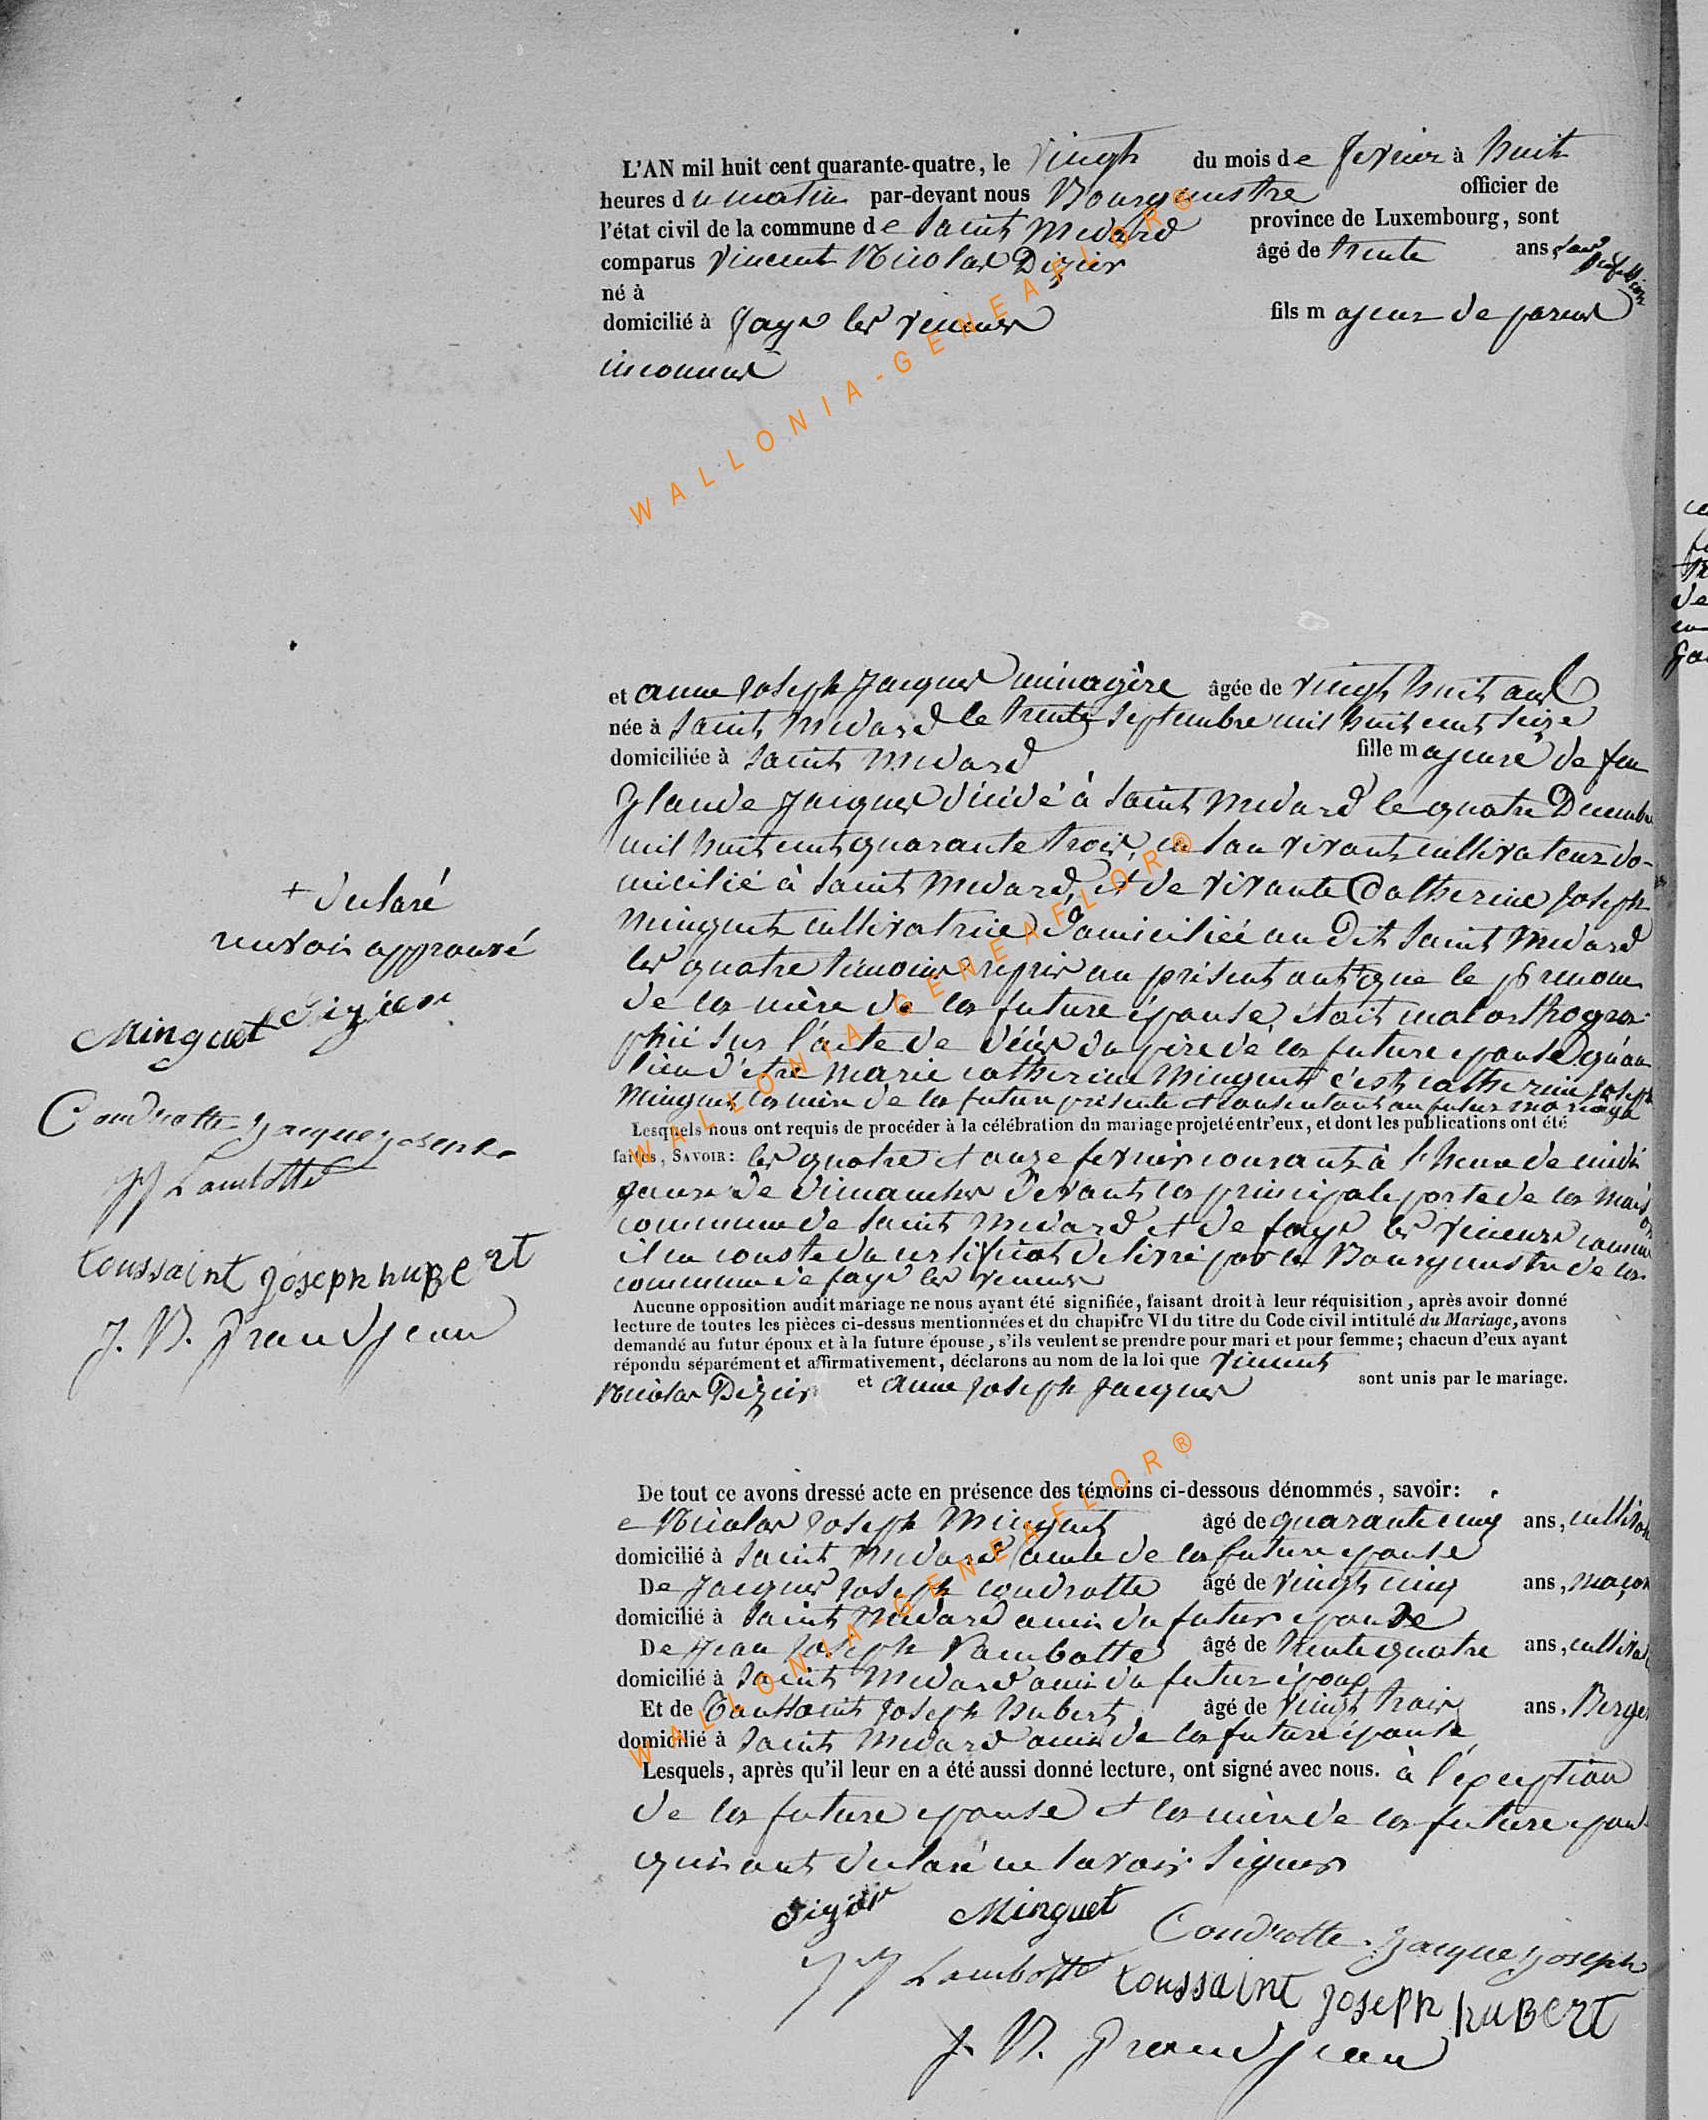 L'AN mil huit cent quarante-quatre, le vingt du mois de fevrier à huit
heures du matin par-devant nous Bourgmestre officier de
l'état civil de la commune de Saint Médard province de Luxembourg, sont
comparus Vincent Nicolas Dizier âgé de trente ans, sans profession
né à
domicilié à Fays les veneurs fils majeur de parens
inconnus
et anne Joseph Jacques ménagère âgée de vingt huit ans
née à Saint Médard le trente Septembre mil huit cent Seize
domiciliée à Saint Médard fille majeure de feu
Jacques décédé à Saint Médard le quatre Decembre
mil huit cent quarante trois, en Son vivant cultivateur do-
micilié à Saint Médard, et de vivante Catherine Joseph
Minguet cultivatrice, domiciliée au dit Saint Médard
les quatre témoins repris au présent ont + que le prénom
de la mère de la future épouse, était mal orthogra-
phié sur l'acte de décès du père de la future épouse qu'au
lieu d'être marie catherine Minguet c'est catherine joseph
Minguet la mère de la future présente et consentant au futur mariage
Lesquels nous ont requis de procéder à la célébration du mariage projeté entr'eux, et dont les publications ont été
faites, SAVOIR: les quatre et onze fevrier courant à l'heure de midi
jours de dimanches devant la principale porte de la maison
commune de Saint Médard et de fays les veneurs comme
il en conste du certificat délivré par le Bourgmestre de la
commune de fays les veneurs
Aucune opposition audit mariage ne nous ayant été signifiée, faisant droit à leur réquisition, après avoir donné
lecture de toutes les pièces ci-dessus mentionnées et du chapitre VI du titre du Code civil intitulé du Mariage, avons
demandé au futur époux et à la future épouse, s'ils veulent se prendre pour mari et pour femme; chacun d'eux ayant
répondu séparément et affirmativement, déclarons au nom de la loi que Vincent
Nicolas Dizier et anne Joseph Jacques sont unis par le mariage.
De tout ce avons dressé acte en présence des témoins ci-dessous dénommés, savoir:
e Nicolas Joseph Minguet âgé de quarante cinq ans,
domicilié à Saint Médard oncle de la future épouse
De Jacques Joseph Condrotte âgé de vingt cinq ans, maçon
domicilié à Saint Médard ami du futur épouse
De Jean Joseph Lambotte âgé de trente quatre ans,
domicilié à Saint Médard ami du futur époux
Et de Toussaint Joseph hubert âgé de vingt trois ans, Berger
domicilié à Saint Médard ami de la future épouse
Lesquels, après qu'il leur en a été aussi donné lecture, ont signé avec nous. à l'exception
de la future épouse et la mère de la future épouse
qui ont déclaré ne savoir Signer
dizier Minguet Condrotte Jacque Joseph
J J Lambotte toussaint joseph huBert
J. N. Grandjean
+ déclaré
renvoi approuvé
Minguet dizier
Condrotte Jacque Joseph
J J Lambotte
toussaint joseph huBert
J. N. Grandjean
WALLONIA-GENEAFLOR®
WALLONIA-GENEAFLOR®
WALLONIA-GENEAFLOR®